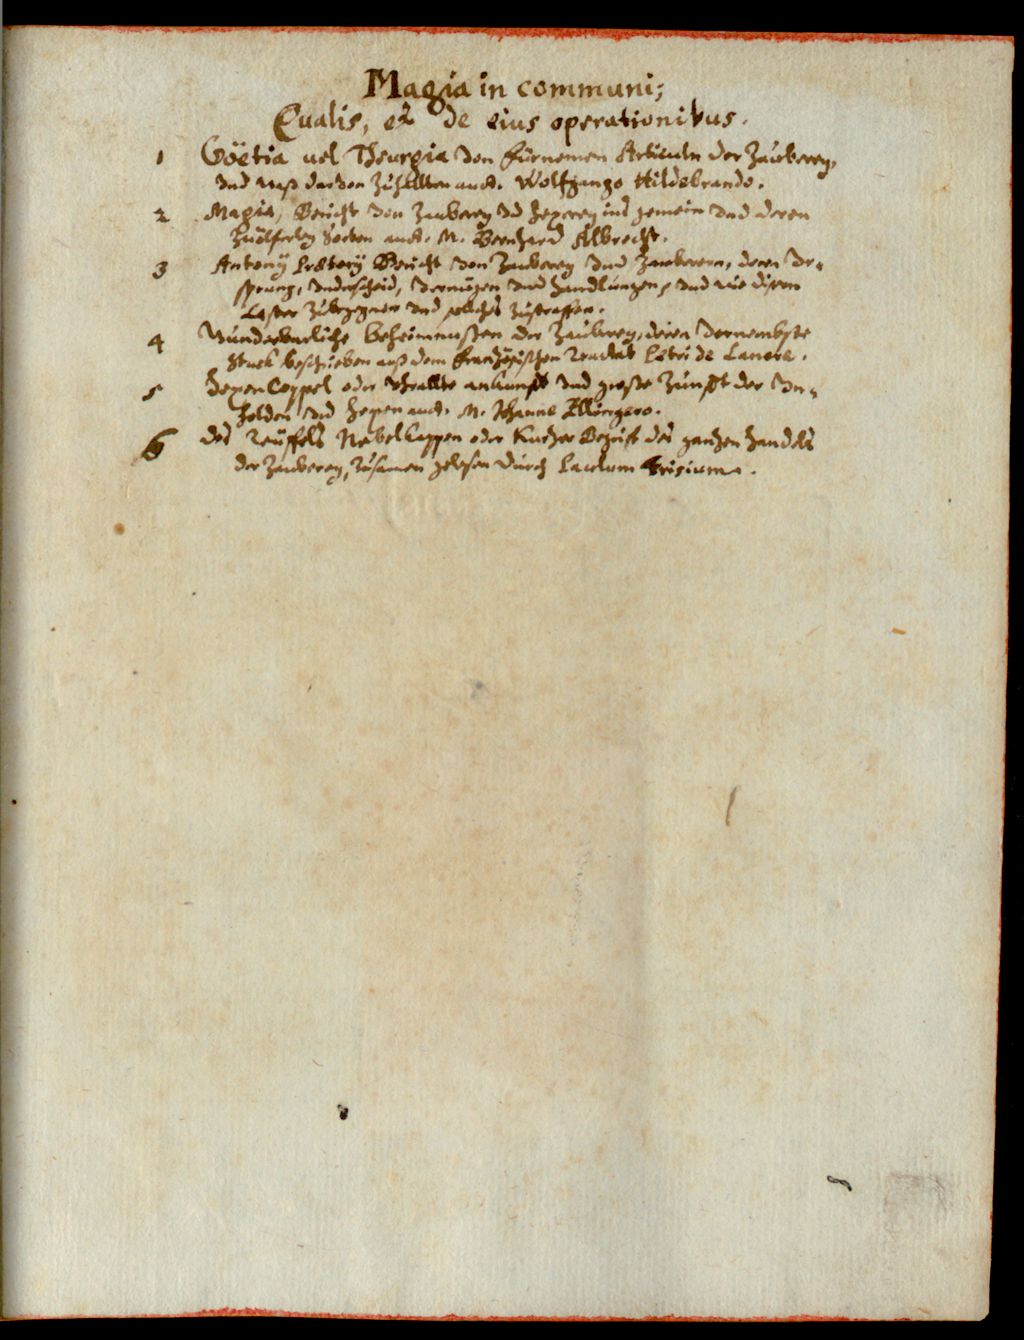 Magia in communi;
Qualis, et de eius operationibus.
1 Göetia uel Theurgia von fürnemen Articuln der Zauberey,
vnd waß darvon Zuhallten auct. Wolfgango Hildebrando.
2 Magia, Bericht von Zauberey vnd Hexerey ins gemein vnd deren
Zwölferley Sorten auct. M. Bernhard Albrecht.
3 Antonÿ Prætorÿ Bericht von Zauberey vnd Zauberern, deren Vr-
sprung, vnderscheid, vermügen vnd handlungen, vnd wie disem
Laster Zubegegnen vnd solliches Zustraffen.
4 Wunderbarliche Geheimnussen der Zauberey, deren vornembste
Stuck beschrieben auß dem Französischen Tractat Petri de Lancre.
5 Hexen Coppel oder vhrallte ankunfft vnd große Zunfft der Vn-
holden vnd Hexen auct. M. Johanne Ellingero.
6 Des Teüffels Nebelkappen oder Kurtzer Begriff des gantzen handels
der Zauberey, Zusamen gelesen durch Paulum Frisium.